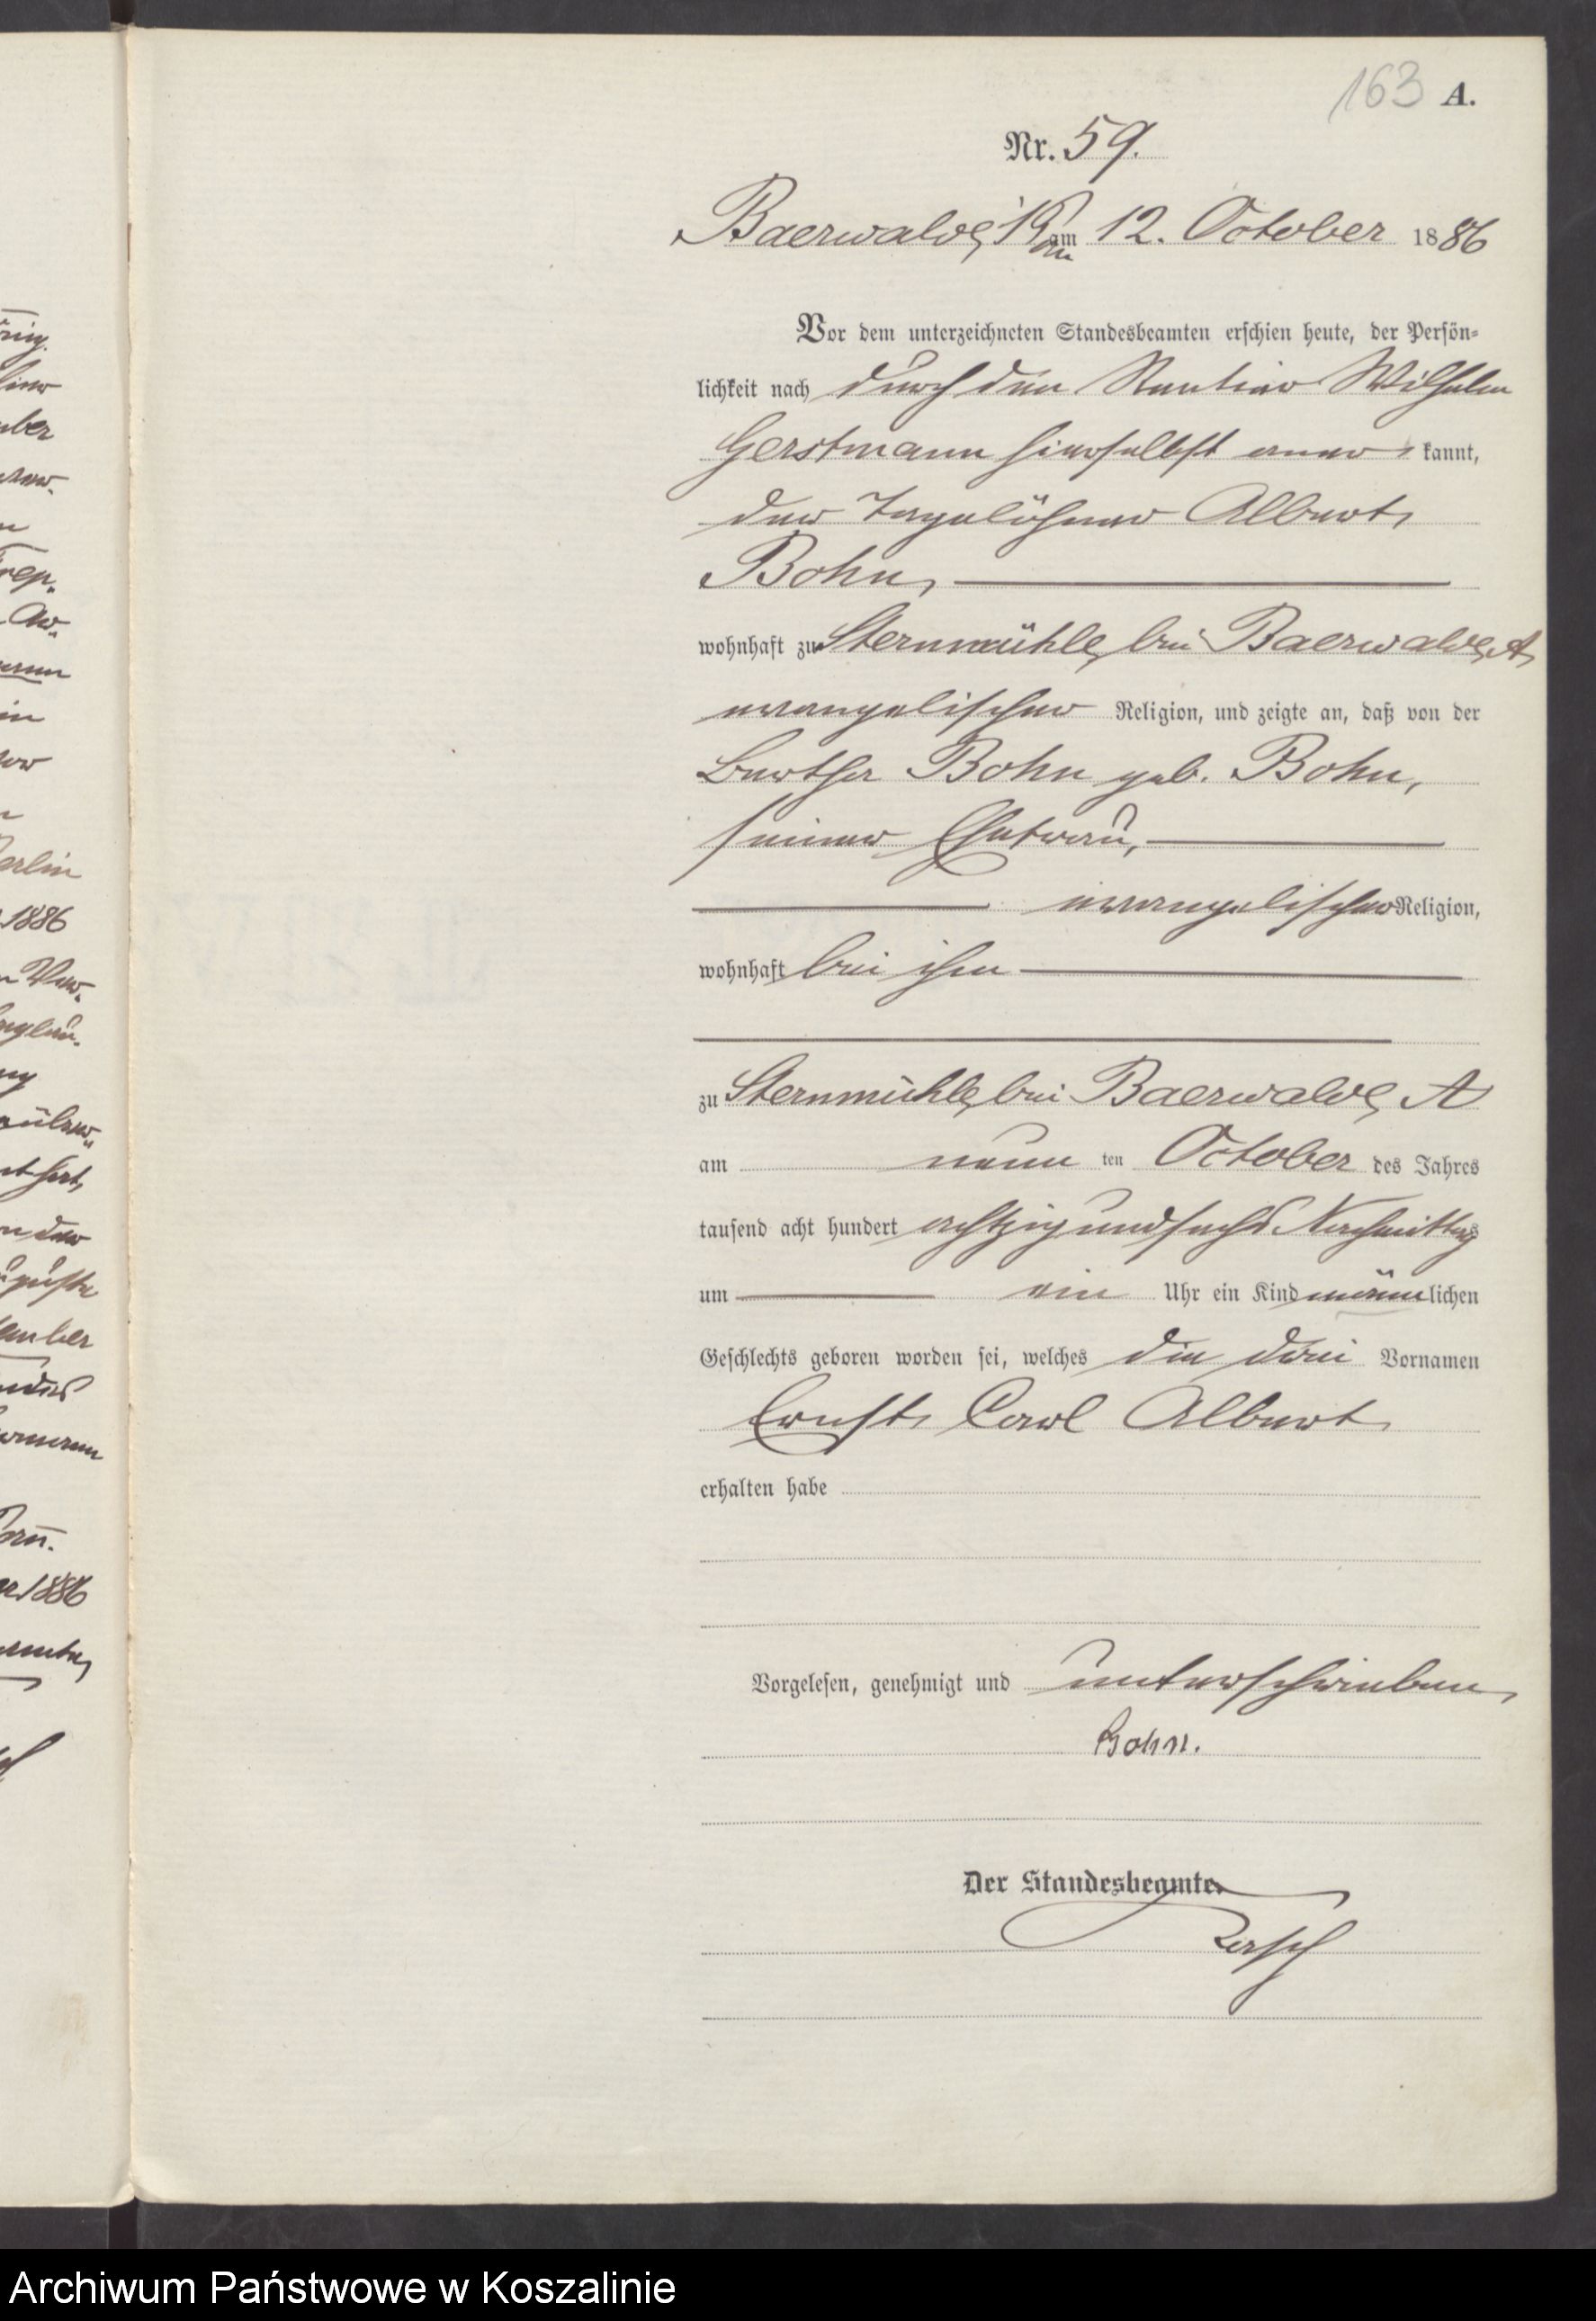 163 A.
Nr. 59.
Baerwalde, am 12. October 1886
Vor dem unterzeichneten Standesbeamten erschien heute, der Persön=
lichkeit nach durch den Rentier Wilhelm
Gerstmann hierselbst aner kannt,
der Tagelöhner Albert
Bohn,
wohnhaft zu Sternmühle bei Baerwalde, A
evangelischer Religion, und zeigte an, daß von der
Bertha Bohn geb. Bohn,
seiner Ehefrau,
evangelischer Religion,
wohnhaft bei ihm
zu Sternmühle bei Baerwalde, A
am neun ten October des Jahres
tausend acht hundert achtzig und sechs Nachmittags
um ein Uhr ein Kind männlichen
Geschlechts geboren worden sei, welches die drei Vornamen
Ernst Carl Albert
erhalten habe
Vorgelesen, genehmigt und unterschrieben
Bohn.
Der Standesbeamte.
Archiwum Państwowe w Koszalinie